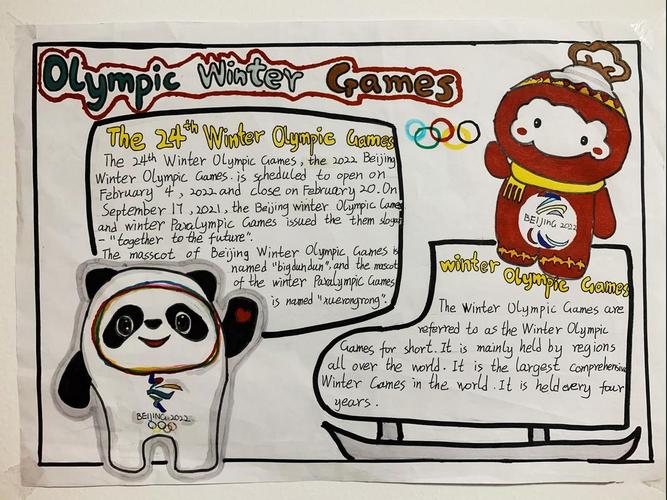 Olympic Winter Games
The 24th Winter Olympic Games
The 24th Winter Olympic Games, the 2022 Beijing
Winter Olympic Games. is scheduled to open on
February 4, 2022 and close on February 20. On
September 17, 2021, the Beijing winter Olympic Games
and winter Paralympic Games issued the them slogan
- "together to the future".
The masscot of Beijing Winter Olympic Games is
named "bigdundun", and the mascot
of the winter Paralympic Games
is named "xuerongrong".
BEIJING 2022
BEIJING 2022
winter Olympic Games
The Winter Olympic Games are
referred to as the Winter Olympic
Games for short. It is mainly held by regions
all over the world. It is the largest comprehensive
Winter Games in the world. It is held every four
years.